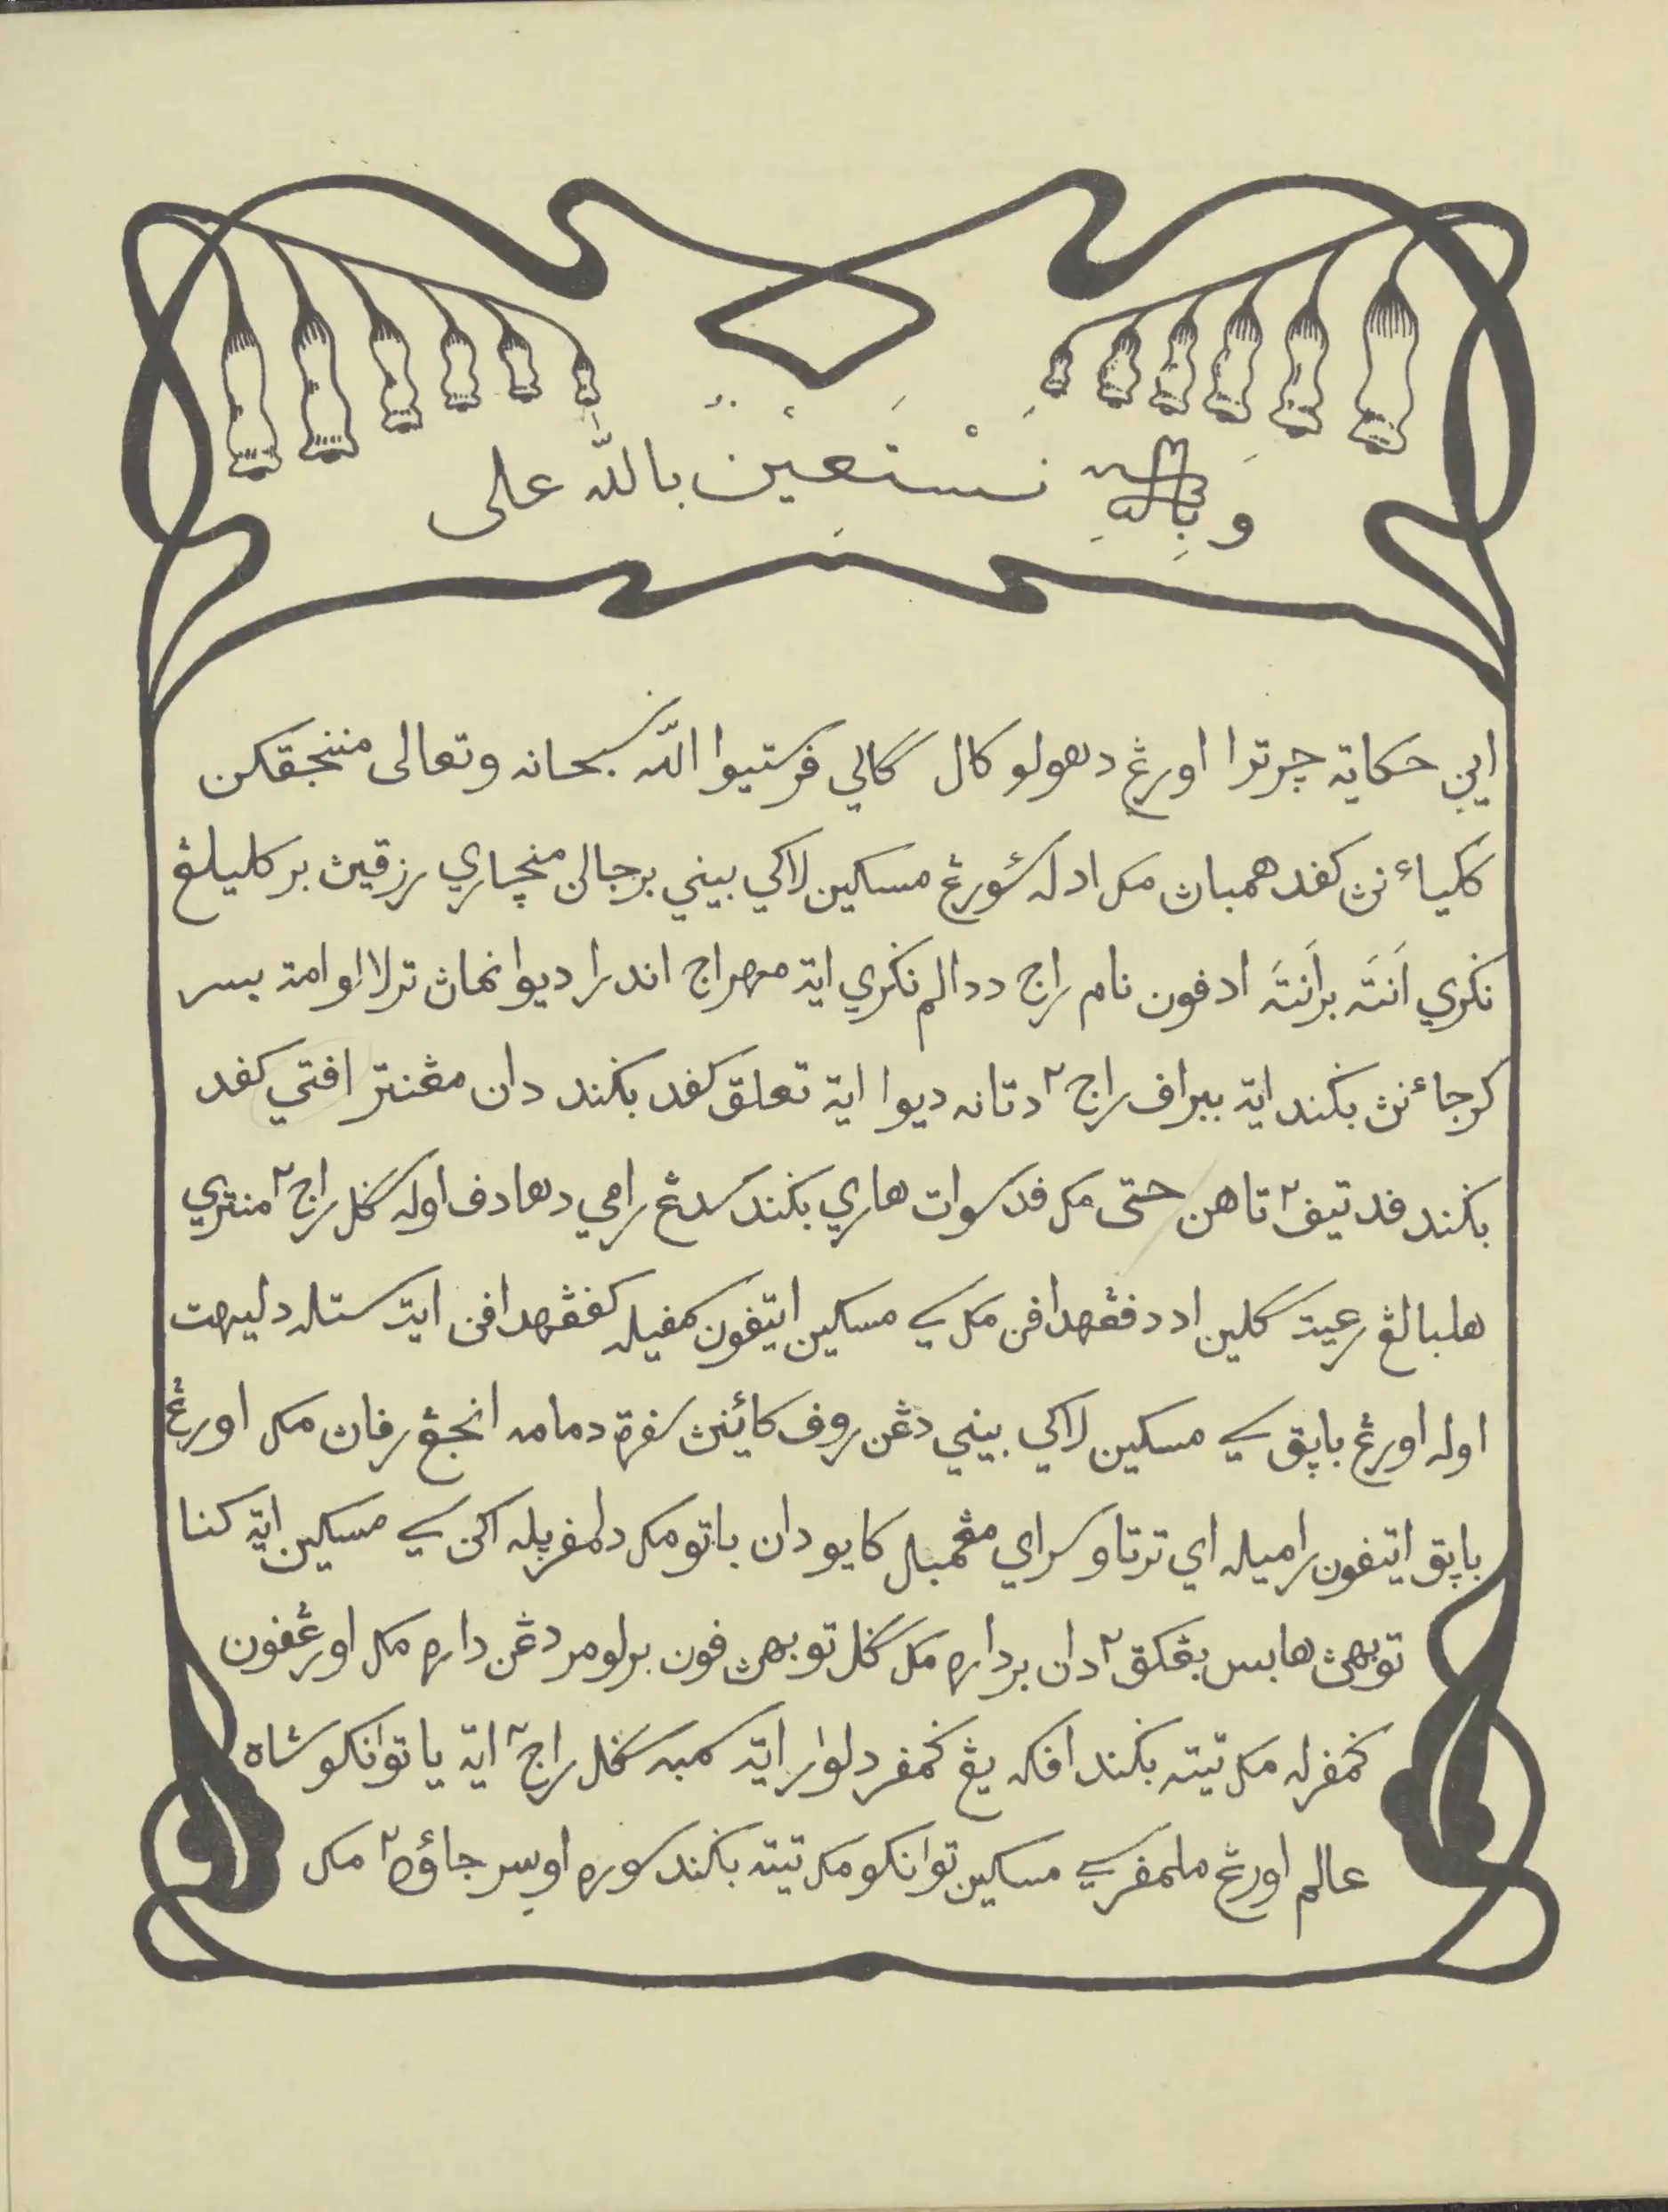 وَبِاللّٰهِ نَسْتَعِيْنُ بالله على
ايني حكاية چرترا اورڠ دهولو كال ڬالي فرستيوا الله سبحانه وتعالى مننجقكن
كلياءنڽ كفد همباڽ مك ادله سؤرڠ مسكين لاكي بيني برجالن منچاري رزقيڽ بركليلڠ
نڬري اَنتَه برانتَه ادفون نام راج ددالم نڬري ايت مهراج اندرا ديوا نماڽ ترلالو امت بسر
كرجاءنڽ بڬند ايت ببراف راج٢ دتانه ديوا ايت تعلق كفد بڬند دان مڠنتر افتي كفد
بڬند فد تيف٢ تاهن حتى مك فد سوات هاري بڬند سدڠ رامي دهادف اوله سڬل راج٢ منتري
هلبالڠ رعيت سكلين اد دفڠهدافن مك سي مسكين ايتفون سمفيله كفڠهدافن ايت ستله دليهت
اوله اورڠ باڽق سي مسكين لاكي بيني دڠن روف كائينڽ سفرة دمامه انجڠ رفاڽ مك اورڠ
باڽق ايتفون راميله اي ترتاوا سراي مڠمبل كايو دان باتو مك دلمفريله اكن سي مسكين ايت كنا
توبهڽ هابس بڠكق٢ دان برداره مك سڬل توبهڽ فون برلومر دڠن داره مك اورڠفون
ڬمفرله مك تيته بڬند افكه يڠ ڬمفر دلوار ايت سمبه سڬل راج٢ ايت يا توانكو شاه
عالم اورڠ ملمفر سي مسكين توانكو مك تيته بڬند سوره اوسر جاؤه٢ مك